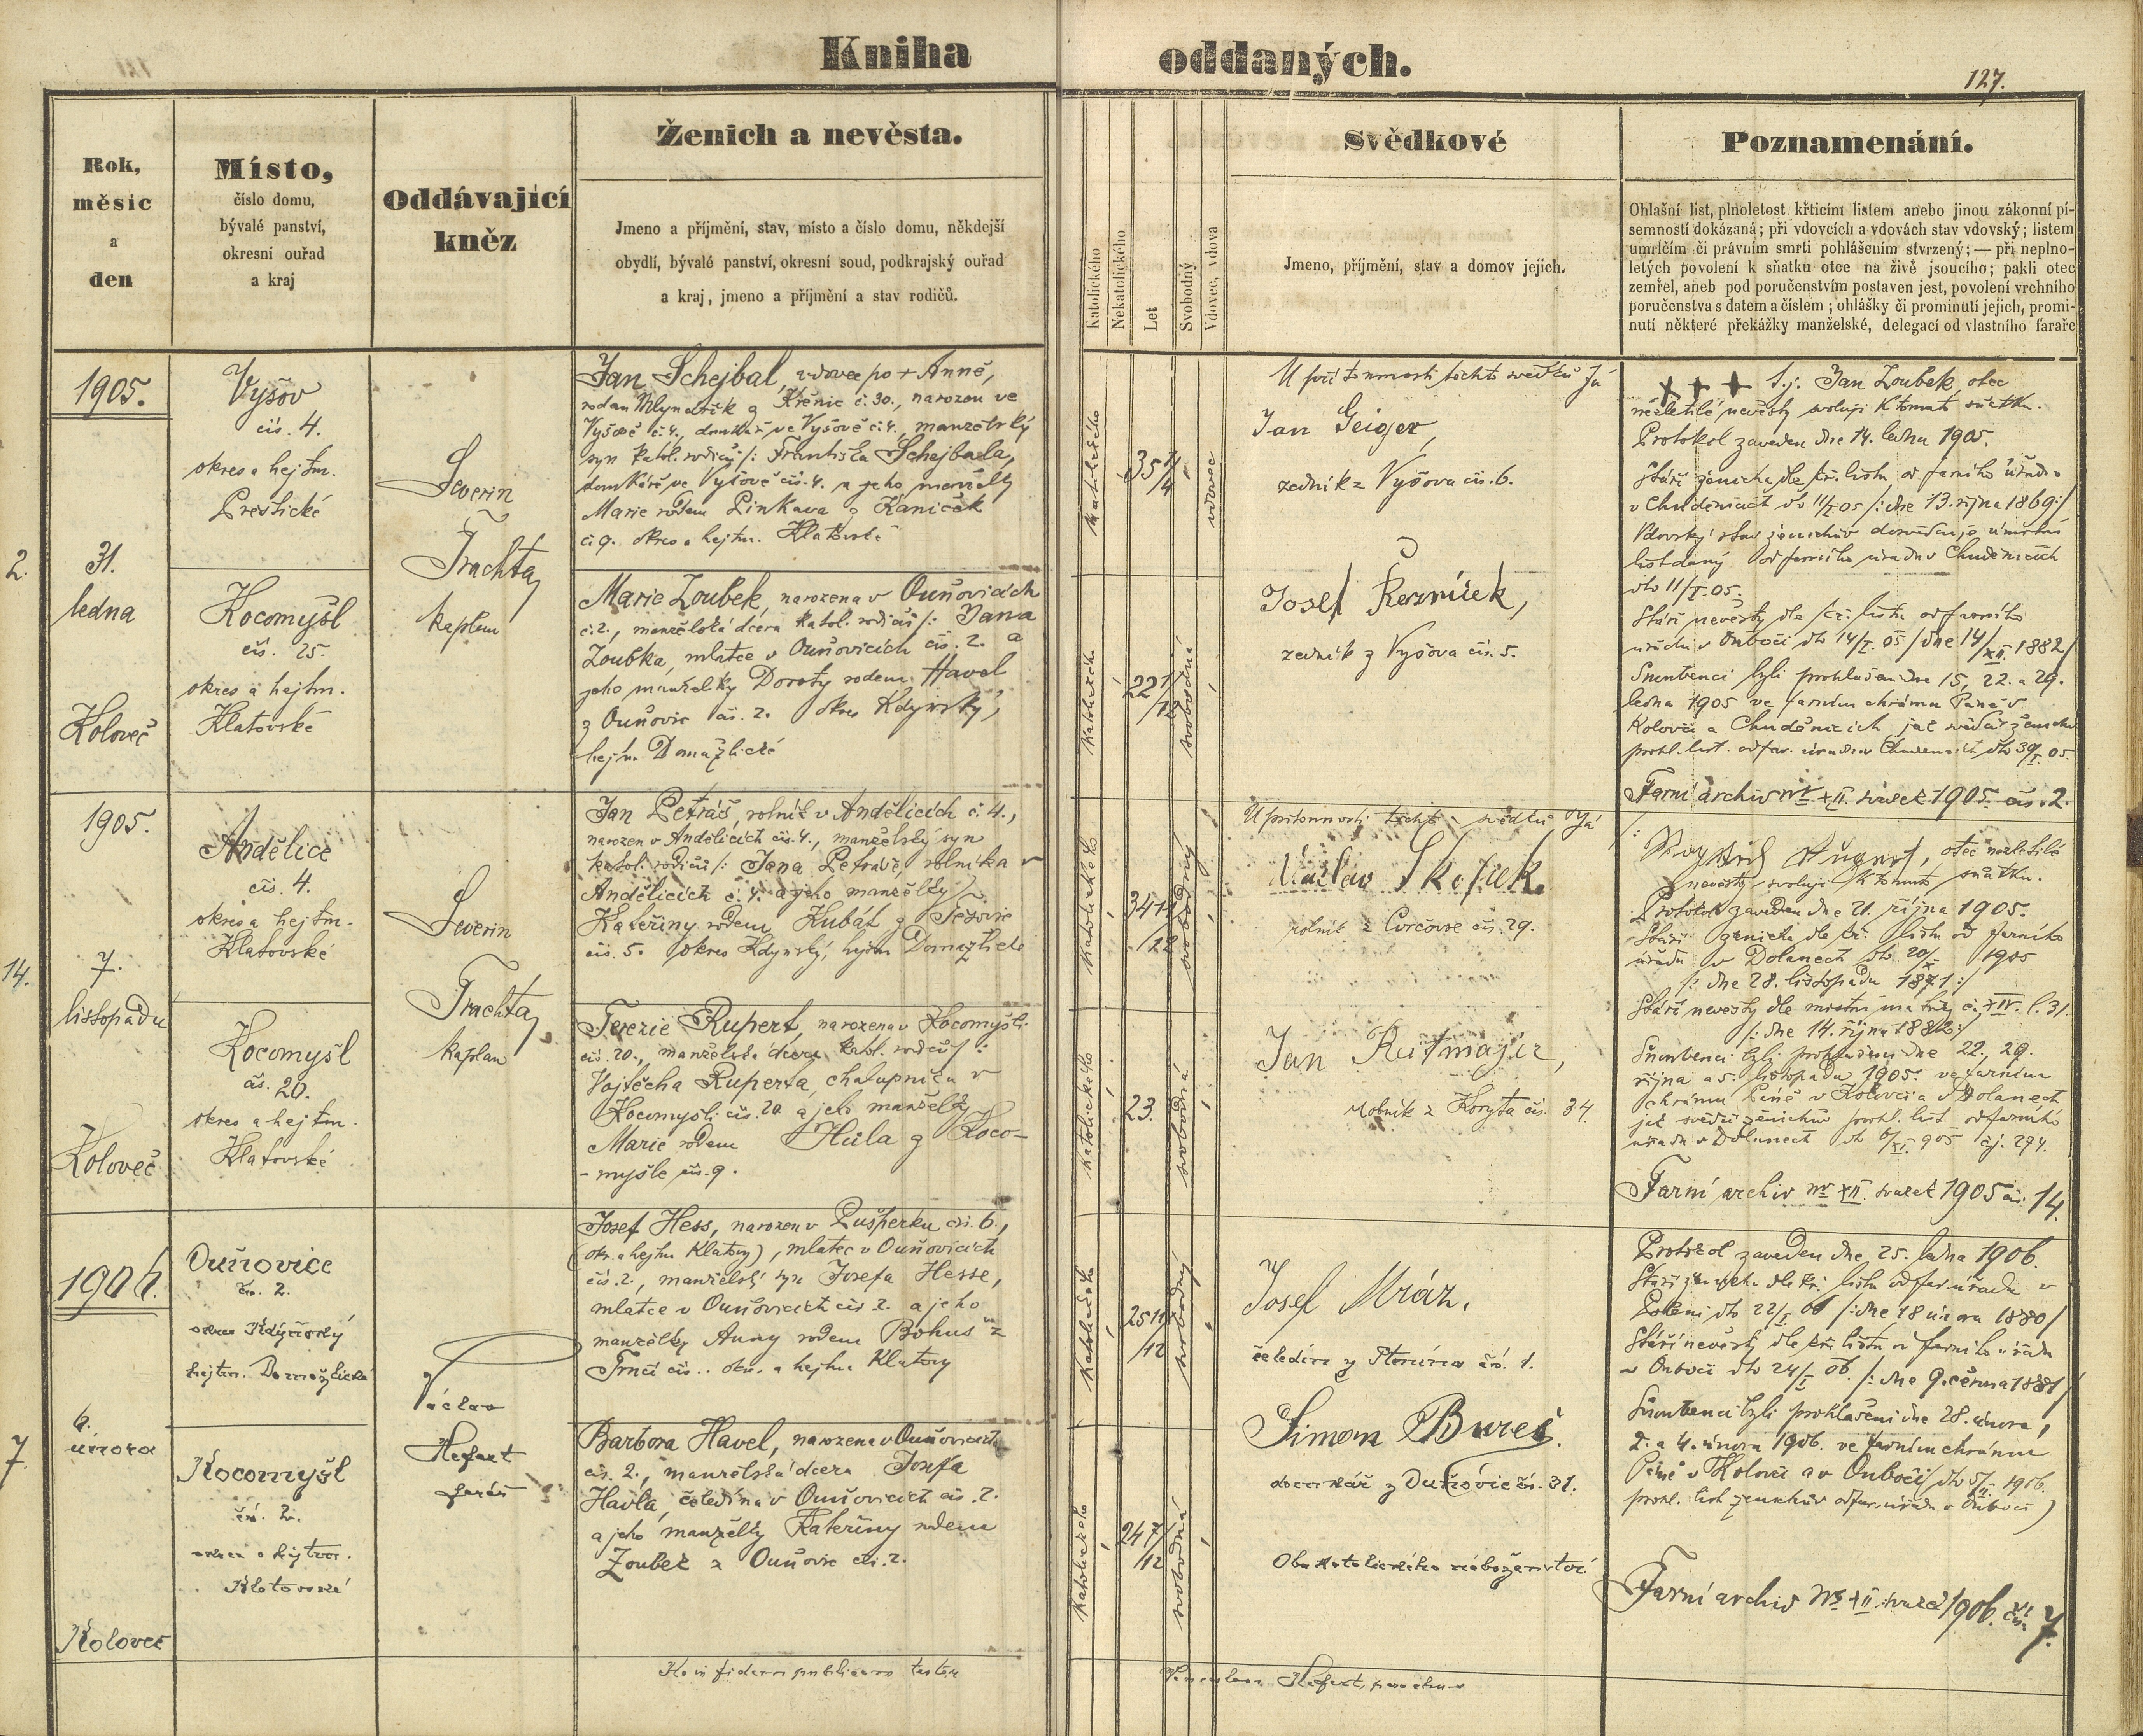 Kniha oddaných.
127.
Rok,
měsíc
a
den
Místo,
číslo domu,
bývalé panství,
okresní ouřad
a kraj
Oddávající
kněz
Ženich a nevěsta.
Jmeno a příjmění, stav, místo a číslo domu, někdejší
obydlí, bývalé panství, okresní soud, podkrajský ouřad
a kraj, jmeno a příjmění a stav rodičů.
Katolického
Nekatolického
Let
Svobodný
Vdovec, vdova
Svědkové
Jmeno, příjmění, stav a domov jejich.
Poznamenání.
Ohlašní list, plnoletost křticím listem anebo jinou zákonní pí-
semností dokázaná; při vdovcích a vdovách stav vdovský; listem
umrlčím či právním smrti pohlášením stvrzený; — při neplno-
letých povolení k sňatku otce na živě jsoucího; pakli otec
zemřel, aneb pod poručenstvím postaven jest, povolení vrchního
poručenstva s datem a číslem; ohlášky či prominutí jejich, promi-
nutí některé překážky manželské, delegací od vlastního faraře
2.
1905.
31.
ledna
Koloveč
Vyšov
čís. 4.
okres a hejtm.
Přeštické
Kocomyšl
čís. 25.
okres a hejtm.
Klatovské
Severin
Trachta,
kaplan
Jan Schejbal, vdovec po + Anně,
z Křenic č. 30., narozen ve
Vyšově č. 4., domkář ve Vyšově č. 4., manželský
syn katol. rodičů /: Františka Schejbala,
domkáře ve Vyšově čís. 4. a jeho manželky
Marie rodem Pinkava z Kaniček
č. 9. okres a hejtm. Klatovské
Marie Zoubek, narozena v Ouňovicích
č. 2., manželská dcera katol. rodičů /: Jana
Zoubka, mlatce v Ouňovicích čís. 2. a
jeho manželky Doroty rodem Havel
z Ouňovic čís. 2. okres Kdyňský,
hejtm. Domažlické
katolického
35 1/4
vdovec
katolického
22 1/12
svobodná
U přítomnosti těchto svědků Já
Jan Geiger,
zedník z Vyšova čís. 6.
Josef Řezníček,
zedník z Vyšova čís. 5.
+ + + t.j. Jan Zoubek, otec
nezletilé nevěsty svoluji k tomuto sňatku.
Protokol zaveden dne 14. ledna 1905.
Stáří ženicha dle kř. listu od farního úřadu
v Chudenicích dto 11/I. 05 /: dne 13. října 1869 :/
Vdovský stav ženichův dosvědčuje úmrtní
list daný od farního úřadu v Chudenicích
dto 11/I. 05.
Stáří nevěsty dle kř. listu od farního
úřadu v Ouboči dto 14/I. 05 / dne 14/XII. 1882 /
Snoubenci byli prohlášeni dne 15., 22. a 29.
ledna 1905 ve farním chrámu Páně v
Kolovči a Chudenicích, jak svědčí ženichův
prohl. list. od far. úřadu v Chudenicích dto 30/I. 05.
Farní archiv Nr XII. svazek 1905. čís. 2.
14.
1905.
7.
listopadu
Koloveč
Andělice
čís. 4.
okres a hejtm.
Klatovské
Kocomyšl
čís. 20.
okres a hejtm.
Klatovské
Severin
Trachta,
kaplan
Jan Petráš, rolník v Andělicích č. 4.,
narozen v Andělicích čís. 4., manželský syn
katol. rodičů /: Jana Petráše, rolníka v
Andělicích č. 4. a jeho manželky
Kateřiny rodem Kubát z
čís. 5. okres Kdyňský, hejtm. Domažlické
Terezie Rupert, narozena v Kocomyšli
čís. 20., manželská dcera katol. rodičů /:
Vojtěcha Ruperta, chalupníka v
Kocomyšli čís. 20 a jeho manželky
Marie rodem Hůla z Koco-
-myšle čís. 9.
katolického
34 11/12
svobodný
katolického
23.
svobodná
U přítomnosti těchto svědků Já
Václav Skořick.
rolník z čís. 29.
Jan Reitmajer,
rolník z Koryta čís. 34.
otec nezletilé
nevěsty svoluji k tomuto sňatku.
Protokol zaveden dne 21. října 1905.
Stáří ženicha dle kř. listu od farního
úřadu v Dolanech dto 20/X. 1905
/: dne 28. listopadu 1871 :/
Stáří nevěsty dle místní matriky č. XIV. l. 31.
/: dne 14. října 1882 :/
Snoubenci byli prohlášeni dne 22., 29.
října a 5. listopadu 1905. ve farním
chrámu Páně v Kolovči a v Dolanech
jak svědčí ženichův prohl. list od farního
úřadu v Dolanech dto 6/XI. 905 čj. 294.
Farní archiv Nr XII. svazek 1905 čís. 14.
7.
1906.
6.
února
Koloveč
Ouňovice
čís. 2.
okres Kdyňský
hejtm. Domažlické
Kocomyšl
čís. 2.
okres a hejtm.
Klatovské
Václav
Hefert
farář
Josef Hess, narozen v Pušperku čís. 6.,
(okr. a hejtm. Klatovy), mlatec v Ouňovicích
čís. 2., manželský syn Josefa Hesse,
mlatce v Ouňovicích čís. 2. a jeho
manželky Anny rodem Bohus z
čís. .. okr. a hejtm. Klatovy
Barbora Havel, narozena v Ouňovicích
čís. 2., manželská dcera Josefa
Havla, čeledína v Ouňovicích čís. 2.
a jeho manželky Kateřiny rodem
Zoubek z Ouňovic čís. 2.
katolického
25 11/12
svobodný
katolického
24 7/12
svobodná
Josef Mráz,
čeledín z čís. 1.
Šimon Bureš.
domkář z Ouňovic čís. 31.
Oba katolického náboženství
Protokol zaveden dne 25. ledna 1906.
Stáří ženicha dle kř. listu od far. úřadu v
Poleni dto 22/I. 06 /: dne 18 února 1880 /
Stáří nevěsty dle kř. listu od farního úřadu
v Ouboči dto 24/I. 06. /: dne 9. června 1881 /
Snoubenci byli prohlášeni dne 28. února,
2. a 4. února 1906. ve farním chrámu
Páně v Kolovči a v Ouboči (dto 5/II. 1906.
prohl. list ženichův od far. úřadu v Ouboči)
Farní archiv Nr XII. svazek 1906. čís. 7.
fidem publicam testor
Hefert, parochus